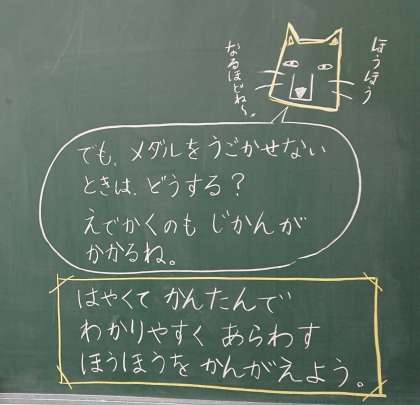 ほうほう
なるほどね〜。
でも、メダルをうごかせない
ときは、どうする？
えでかくのも じかんが
かかるね。
はやくて かんたんで
わかりやすく あらわす
ほうほうを かんがえよう。